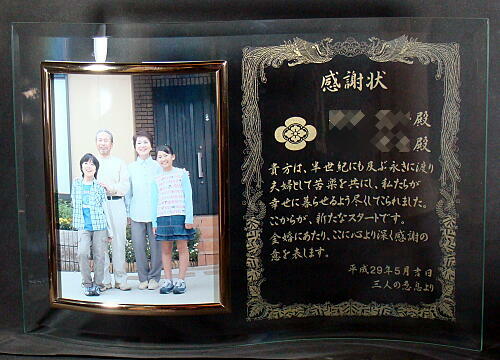 感謝状
殿
殿
貴方は、半世紀にも及ぶ永きに渡り
夫婦として苦楽を共にし、私たちが
幸せに暮らせるよう尽してこられました。
ここからが、新たなスタートです。
金婚にあたり、ここに心より深く感謝の
意を表します。
平成29年5月吉日
三人の息息より